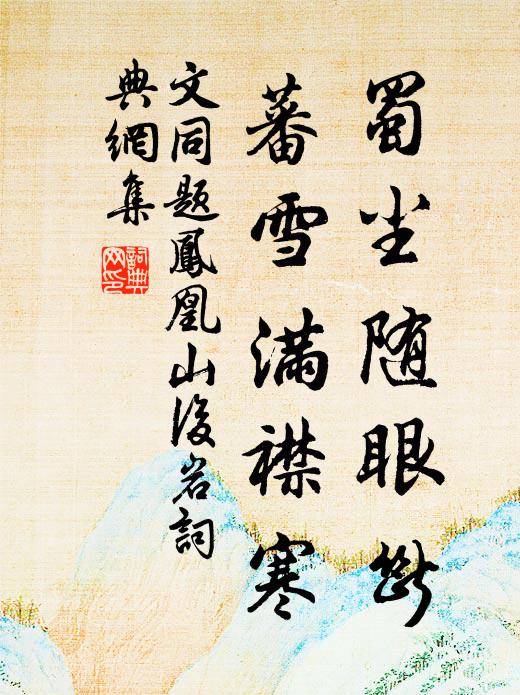 蜀尘随眼断
蕃雪满襟寒
文同题鳳凰山後岩詞
典網集
詞典
网印